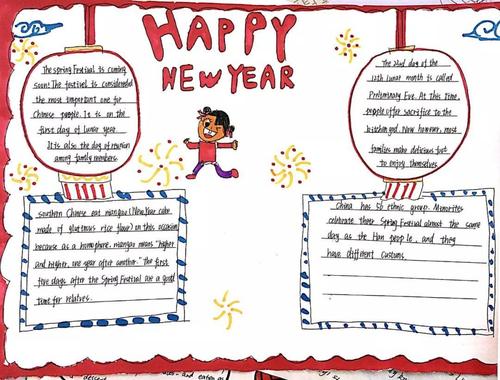 HAPPY
NEW YEAR
The Spring Festival is coming
soon! The festival is considered
the most important one for
Chinese people. It is on the
first day of lunar year
It is also the day of reunion
among family members.
The 23rd day of the
12th lunar month is called
Preliminary Eve. At this time,
people offer sacrifice to the
kitchen god. Now however, most
families make delicious food
to enjoy themselves.
Southern Chinese eat niangao (New Year cake
made of glutinous rice flour) on this occasion
because as a homophone, niangao means "higher
and higher, one year after another." The first
five days after the Spring Festival are a good
time for relatives.
China has 56 ethnic group. Minorities
celebrate their Spring Festival almost the same
day as the Han people, and they
have different customs.